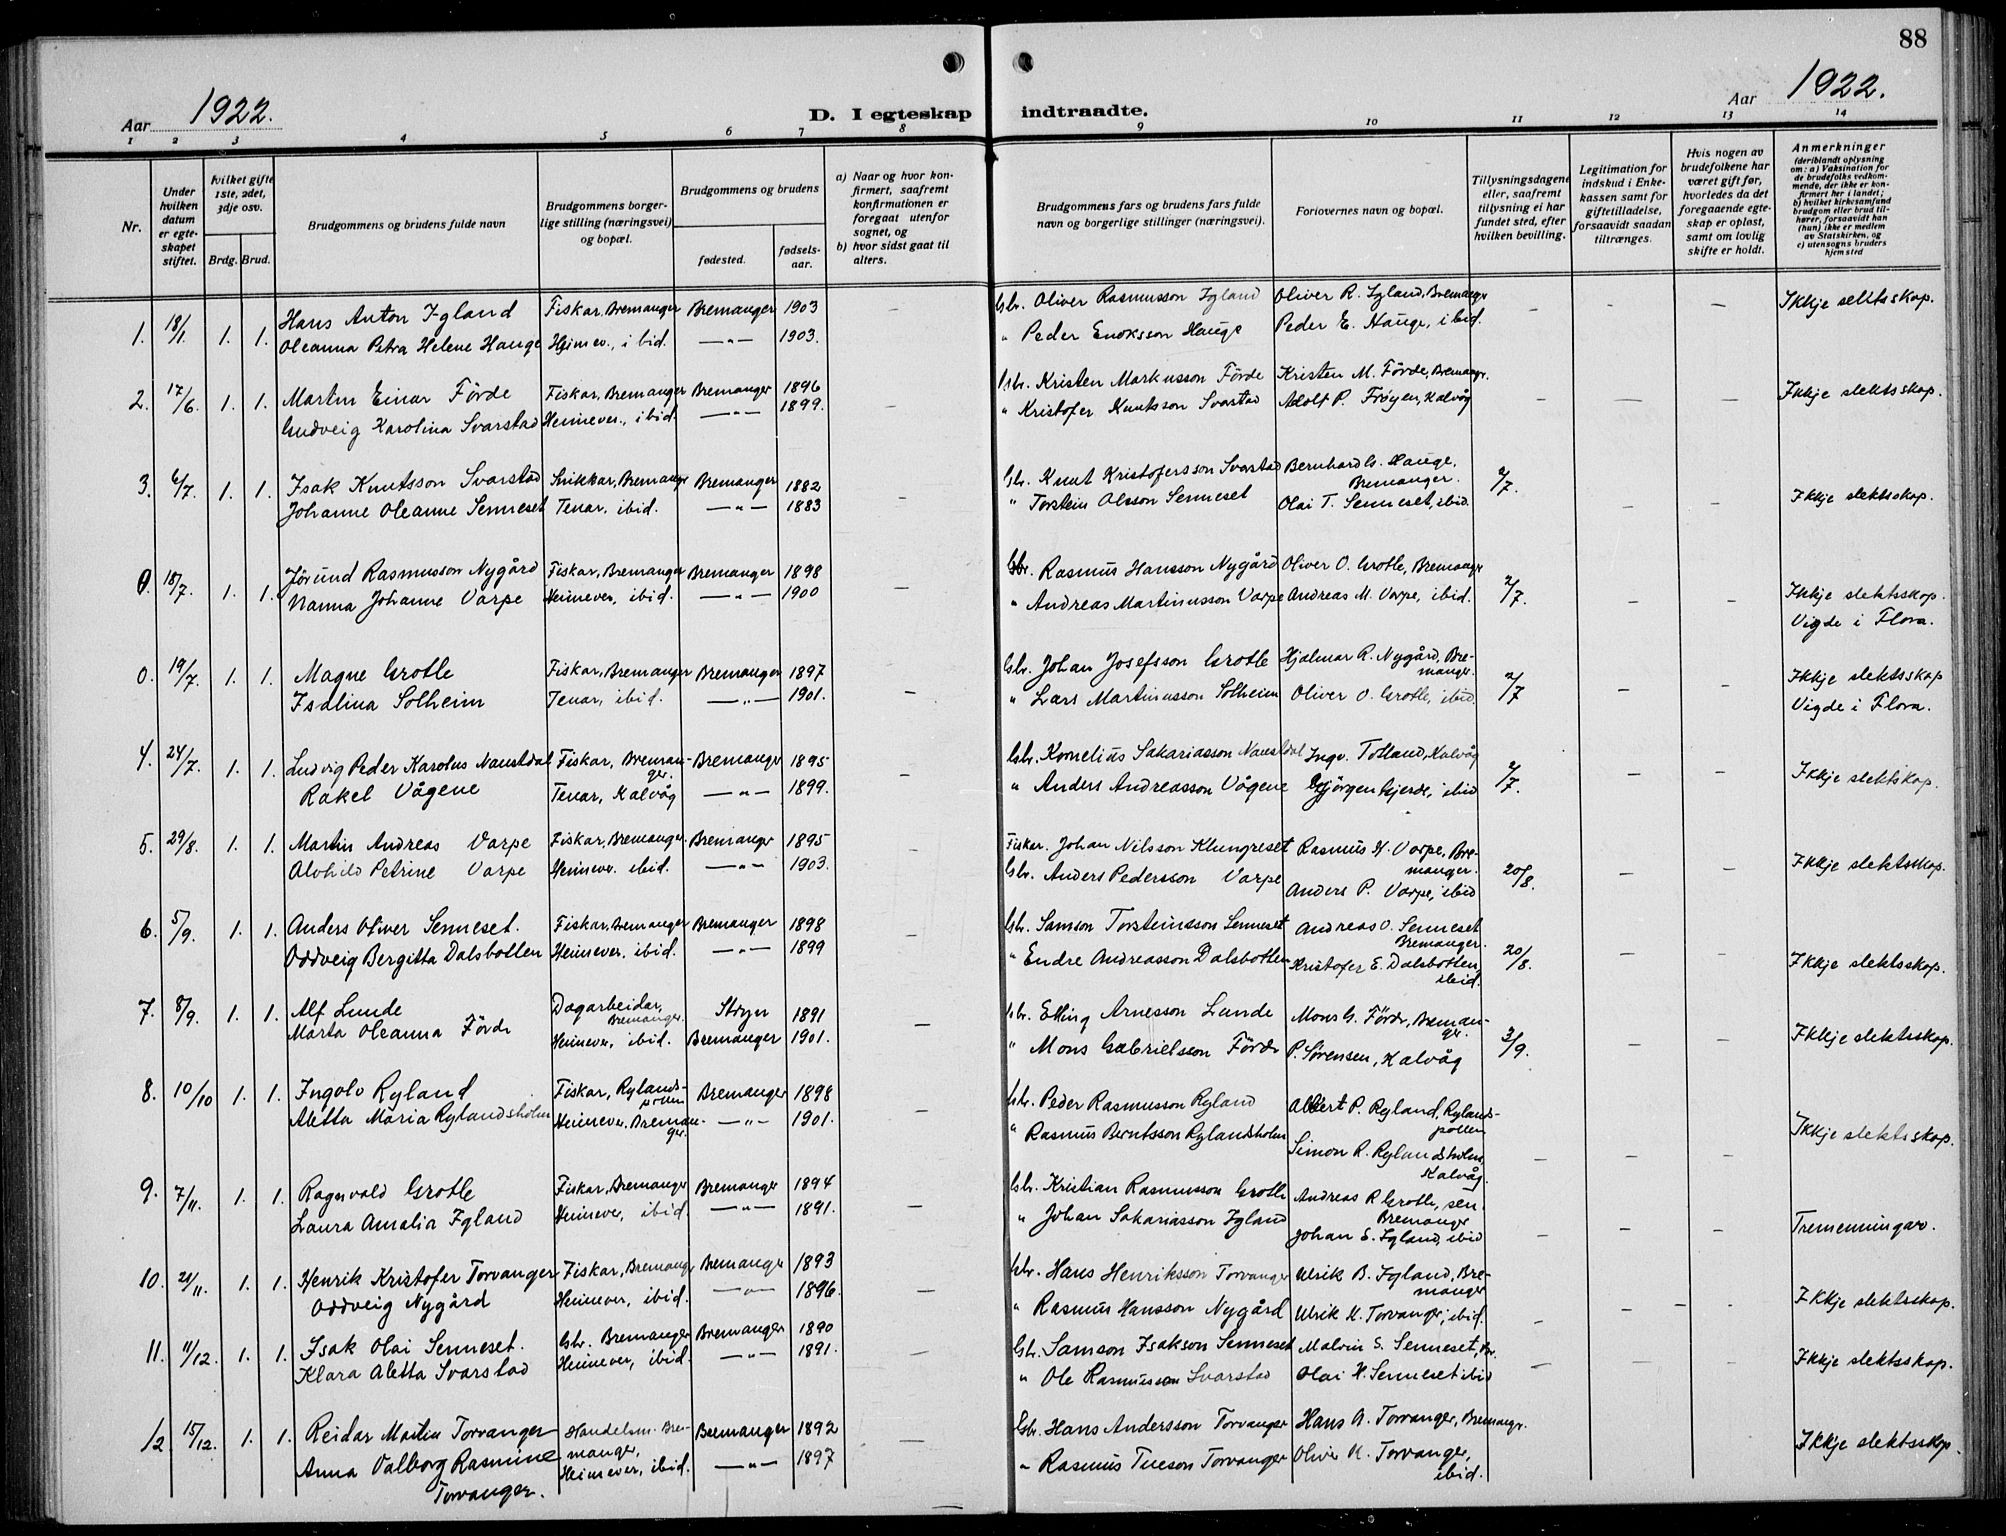 88
Aar 1922.
D. I egteskap indtraadte.
Aar 1922.
1 2 3 4 5 6 7 8 9 10 11 12 13 14
Nr.
Under hvilken datum er egteskapet stiftet.
hvilket gifte 1ste, 2det, 3dje osv.
Brdg. Brud.
Brudgommens og brudens fulde navn
Brudgommens borgerlige stilling (næringsvei) og bopæl.
Brudgommens og brudens
fødested.
fødselsaar.
a) Naar og hvor konfirmert, saafremt konfirmationen er foregaat utenfor sognet, og
b) hvor sidst gaat til alters.
Brudgommens fars og brudens fars fulde navn og borgerlige stillinger (næringsvei).
Forlovernes navn og bopæl.
Tillysningsdagene eller, saafremt tillysning ei har fundet sted, efter hvilken bevilling.
Legitimation for indskud i Enkekassen samt for giftetilladelse, forsaavidt saadan tiltrænges.
Hvis nogen av brudefolkene har været gift før, hvorledes da det foregaaende egteskap er opløst, samt om lovlig skifte er holdt.
Anmerkninger
(deriblandt oplysning om: a) Vaksination for de brudefolks vedkommende, der ikke er konfirmert her i landet; b) hvilket kirkesamfund brudgom eller brud tilhører, forsaavidt han (hun) ikke er medlem av Statskirken, og c) utensogns bruders hjemsted
1. 18/1. 1. 1. Hans Anton Igland Fiskar, Bremanger Bremanger 1903 — Gbr. Oliver Rasmusson Igland Oliver R. Igland, Bremanger — — — Ikkje sektsskap.
Oleanna Petra Helene Hauge Heimev., ibid. —"— 1903. " Peder Enoksson Hauge Peder E. Hauge, ibid.
2. 17/6. 1. 1. Martin Einar Förde Fiskar, Bremanger Bremanger 1896 — Gbr. Kristen Markusson Förde Kristen M. Förde, Bremangr. — — — Ikkje slektsskap.
Gudveig Karolina Svarstad Heimever., ibid. —"— 1899. " Kristofer Knutsson Svarstad Adolf P. Frøyen, Kalvåg
3. 6/7. 1. 1. Isak Knutsson Svarstad Snikkar, Bremanger Bremanger 1882 — Gbr. Knut Kristofersson Svarstad Bernhard G. Hauge, Bremanger. 2/7. — — Ikkje slektsskap.
Johanne Oleanne Senneset Tenar, ibid. —"— 1883 " Torstein Olsson Senneset Olai T. Senneset, ibid.
0. 18/7. 1. 1. Jørund Rasmusson Nygård Fiskar, Bremanger Bremanger 1898 — Gbr. Rasmus Hansson Nygård Oliver O. Grotle, Bremanger 2/7. — — Ikkje slektsskap.
Nanna Johanne Varpe Heimever, ibid. —"— 1900 " Andreas Martinusson Varpe Andreas M. Varpe, ibid. Vigde i Flora.
0. 19/7. 1. 1. Magne Grotle Fiskar, Bremanger Bremanger 1897 — Gbr. Johan Josefsson Grotle Hjalmar R. Nygård, Bremanger. 2/7 — — Ikkje slektsskap
Isalina Solheim Tenar, ibid. —"— 1901. " Lars Martinusson Solheim Oliver O. Grotle, ibid. Vigde i Flora.
4. 24/7. 1. 1. Ludvig Peder Karolus Naustdal Fiskar, Bremanger. Bremanger 1895 — Gbr. Kornelius Sakariasson Naustdal Ingv. Totland, Kalvåg 2/7. — — Ikkje slektskap.
Rakel Vågene Tenar, Kalvåg —"— 1899. " Anders Andreasson Vågene Gjørgen Gjerde, ibid
5. 29/8. 1. 1. Martin Andreas Varpe Fiskar, Bremanger. Bremanger 1895 — Fiskar. Johan Nilsson Klungreset Rasmus H. Varpe, Bremanger. 20/8. — — Ikkje slektsskap.
Alvhild Petrine Varpe Heimever. ibid. —"— 1903. Gbr. Anders Pedersson Varpe Anders P. Varpe, ibid
6. 5/9. 1. 1. Anders Oliver Senneset. Fiskar, Bremanger Bremanger 1898 — Gbr. Samson Torsteinsson Senneset Andreas O. Senneset Bremanger. 20/8. — — Ikkje slektsskap.
Oddveig Bergitta Dalsbotten Heimever, ibid. —"— 1899 " Endre Andreasson Dalsbotten Kristofer E. Dalsbotten, ibid.
7. 8/9. 1. 1. Alf Lunde Dagarbeidar, Bremanger. Stryn 1891 — Gbr. Elling Arnesson Lunde Mons G. Förde, Bremanger. 3/9. — — Ikkje slektsskap.
Marta Oleanna Förde Heimever, ibid. Bremanger 1901. " Mons Gabrielsson Förde P. Sørensen, Kalvåg
8. 10/10 1. 1. Ingolv Ryland Fiskar, Rylandspollen Bremanger 1898 — Gbr. Peder Rasmusson Ryland Albert P. Ryland, Rylandspollen — — — Ikkje slektsskap.
Aletta Maria Rylandsholm Heimever, Bremanger. —"— 1901. " Rasmus Berntsson Rylandsholm Simon R. Rylandsholm, Kalvåg.
9. 7/11. 1. 1. Ragnvald Grotle Fiskar, Bremanger Bremanger 1894 — Gbr. Kristian Rasmusson Grotle Andreas R Grotle, sen. Bremanger — — — Tremenningar.
Laura Amalia Igland Heimever, ibid. —"— 1891. " Johan Sakariasson Igland Johan S. Igland, ibid
10. 21/11. 1. 1. Henrik Kristofer Torvanger Fiskar, Bremanger Bremanger 1893 — Gbr. Hans Henriksson Torvanger Ulrik B. Igland, Bremanger — — — Ikkje slektsskap.
Oddveig Nygård Heimever, ibid. —"— 1896. " Rasmus Hansson Nygård Ulrik H. Torvanger, ibid.
11. 11/12. 1. 1. Isak Olai Senneset. Gbr. Bremanger Bremanger 1890 — Gbr. Samson Isakson Senneset Malvin S. Senneset, Br. — — — Ikkje slektsskap.
Klara Aletta Svarstad Heimever, ibid. —"— 1891. " Ole Rasmusson Svarstad Olai H. Senneset ibid
12. 15/12. 1. 1. Reidar Martin Torvanger Handelsm. Bremanger, Bremanger 1892 — Gbr. Hans Andersson Torvanger Hans A. Torvanger, Bremangr. — — — Ikkje slektsskap.
Anna Valborg Rasmine Torvanger. Heimever, ibid. —"— 1897 " Rasmus Tueson Torvanger Oliver H. Torvanger, ibid.